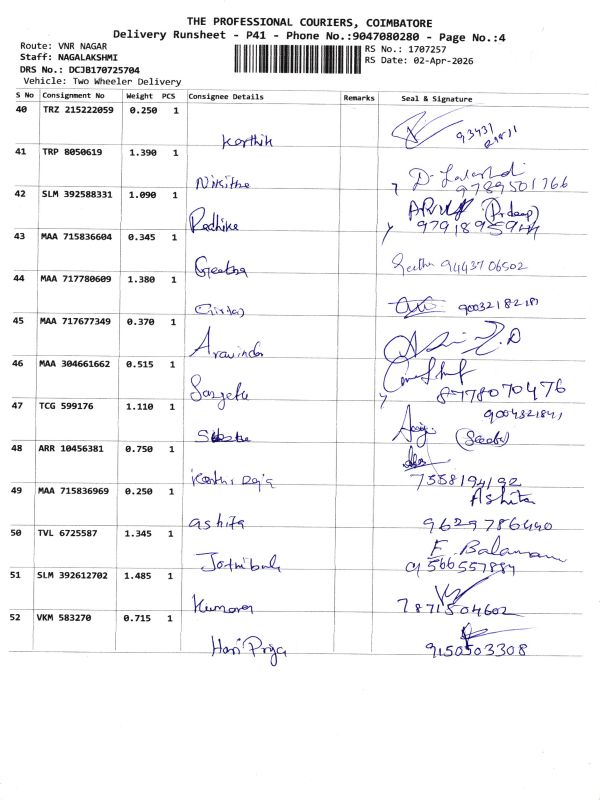 THE PROFESSIONAL COURIERS, COIMBATORE
Delivery Runsheet - P41 - Phone No.:9047080280 - Page No.:4
Route: VNR NAGAR
Staff: NAGALAKSHMI
DRS No.: DCJB170725704
Vehicle: Two Wheeler Delivery
RS No.: 1707257
RS Date: 02-Apr-2026
S No Consignment No Weight PCS Consignee Details Remarks Seal & Signature
40 TRZ 215222059 0.250 1
Karthik
41 TRP 8050619 1.390 1
Nikitha 9789501766
42 SLM 392588331 1.090 1
Radhika (Pradeep)
43 MAA 715836604 0.345 1
Geetha Geetha 9443706502
44 MAA 717780609 1.380 1
45 MAA 717677349 0.370 1
Aravinda
46 MAA 304661662 0.515 1
8778070476
47 TCG 599176 1.110 1
9004321841
48 ARR 10456381 0.750 1
Karthi Raja 7558194192
49 MAA 715836969 0.250 1 Ashita
ashita 9629786440
50 TVL 6725587 1.345 1 E. Balamani
9566557884
51 SLM 392612702 1.485 1
7871504602
52 VKM 583270 0.715 1
Hari Priya 9150503308